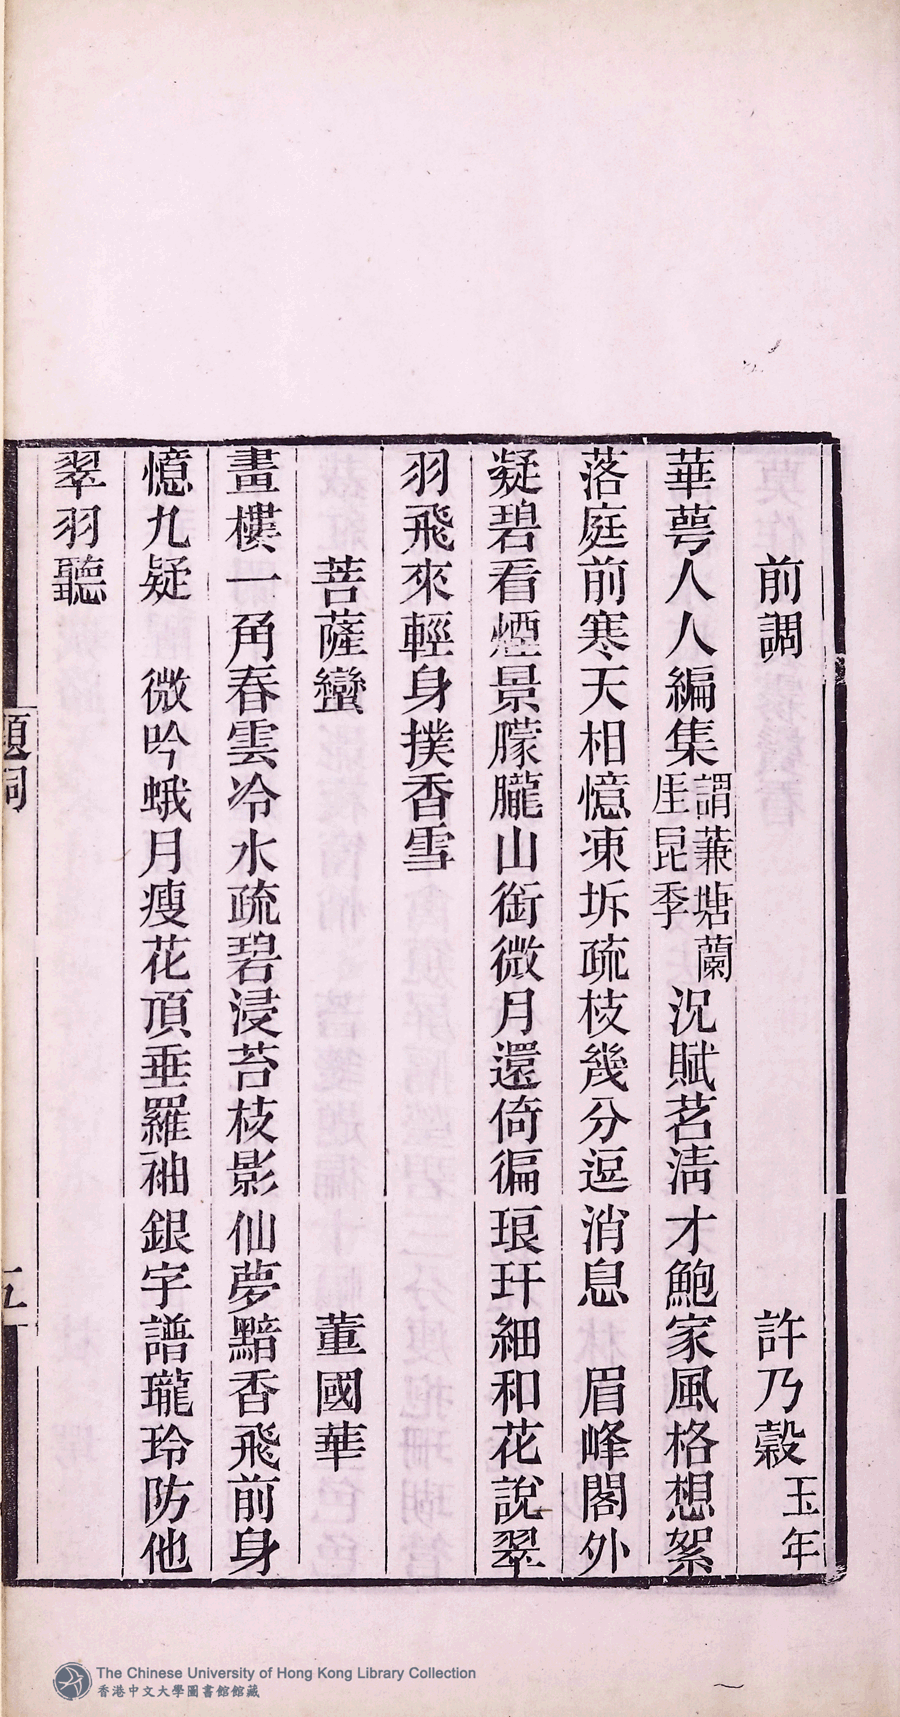 前調　許乃穀玉年
華萼人人編集謂蒹塘蘭厓昆季況賦茗淸才鮑家風格想絮
落庭前寒天相憶凍坼疏枝幾分逗消息　眉峰閣外
凝碧看煙景朦朧山銜微月還倚徧琅玕細和花說翠
羽飛來輕身撲香雪
菩薩蠻　董國華
畫樓一角春雲冷水疏碧浸苔枝影仙夢黯香飛前身
憶九疑　微吟蛾月瘦花頂垂羅袖銀字譜瓏玲防他
翠羽聽
題詞
五
The Chinese University of Hong Kong Library Collection
香港中文大學圖書館館藏